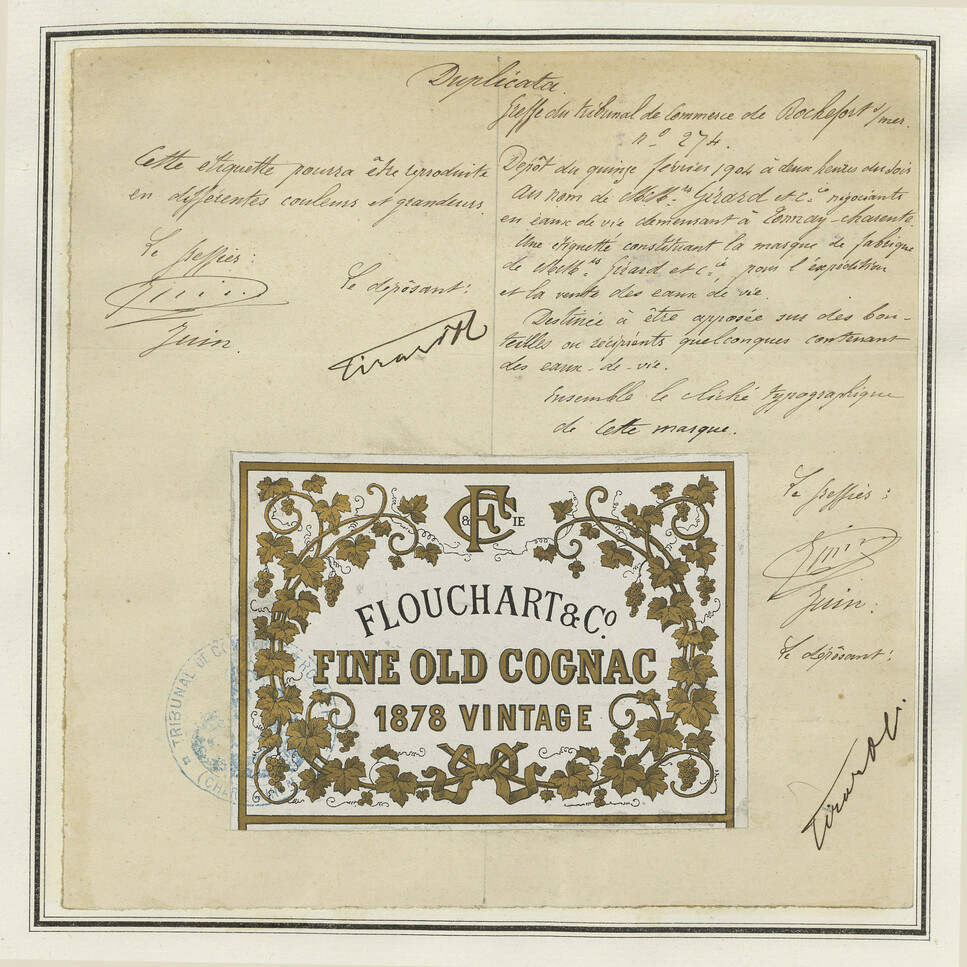 Duplicata.
Greffe du tribunal de Commerce de Rochefort s/mer.
n° 274.
Cette étiquette pourra être reproduite
en différentes couleurs et grandeurs.
Le Greffier:
Juin.
Le déposant:
Girard
Dépôt du quinze février 1904 à deux heures du soir
au nom de MM.rs Girard et Cie négociants
en eaux de vie demeurant à Tonnay-charente.
Une étiquette constituant la marque de fabrique
de MM.rs Girard et Cie pour l'expédition
et la vente des eaux de vie.
Destinée à être apposée sur des bou-
teilles ou récipients quelconques contenant
des eaux-de-vie.
Ensemble le cliché typographique
de cette marque.
Le Greffier:
Juin:
Le déposant:
Girard
FC & IE
FLOUCHART & Co
FINE OLD COGNAC
1878 VINTAGE
TRIBUNAL OF